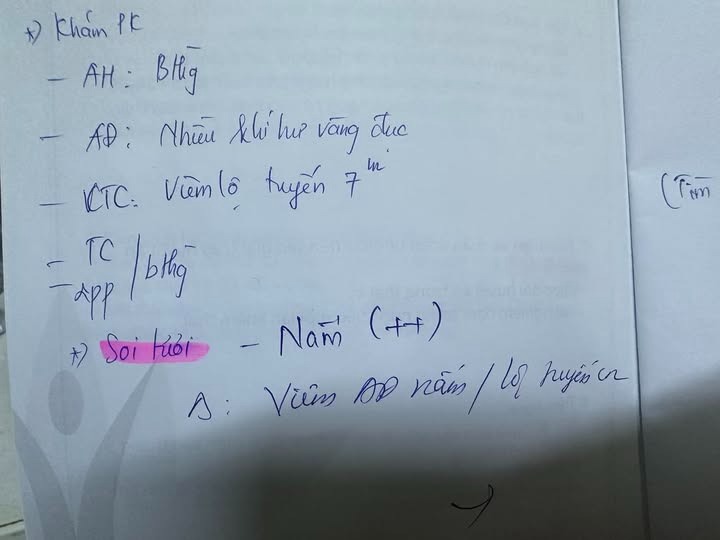 *) Khám PK
- ÂH: Bthg
- ÂĐ: Nhiều khí hư vàng đục
- CTC: Viêm lộ tuyến 7
(Tim
- TC
- APP / bthg
*) Soi tươi - Nấm (++)
Δ: Viêm ÂĐ nấm / lộ tuyến